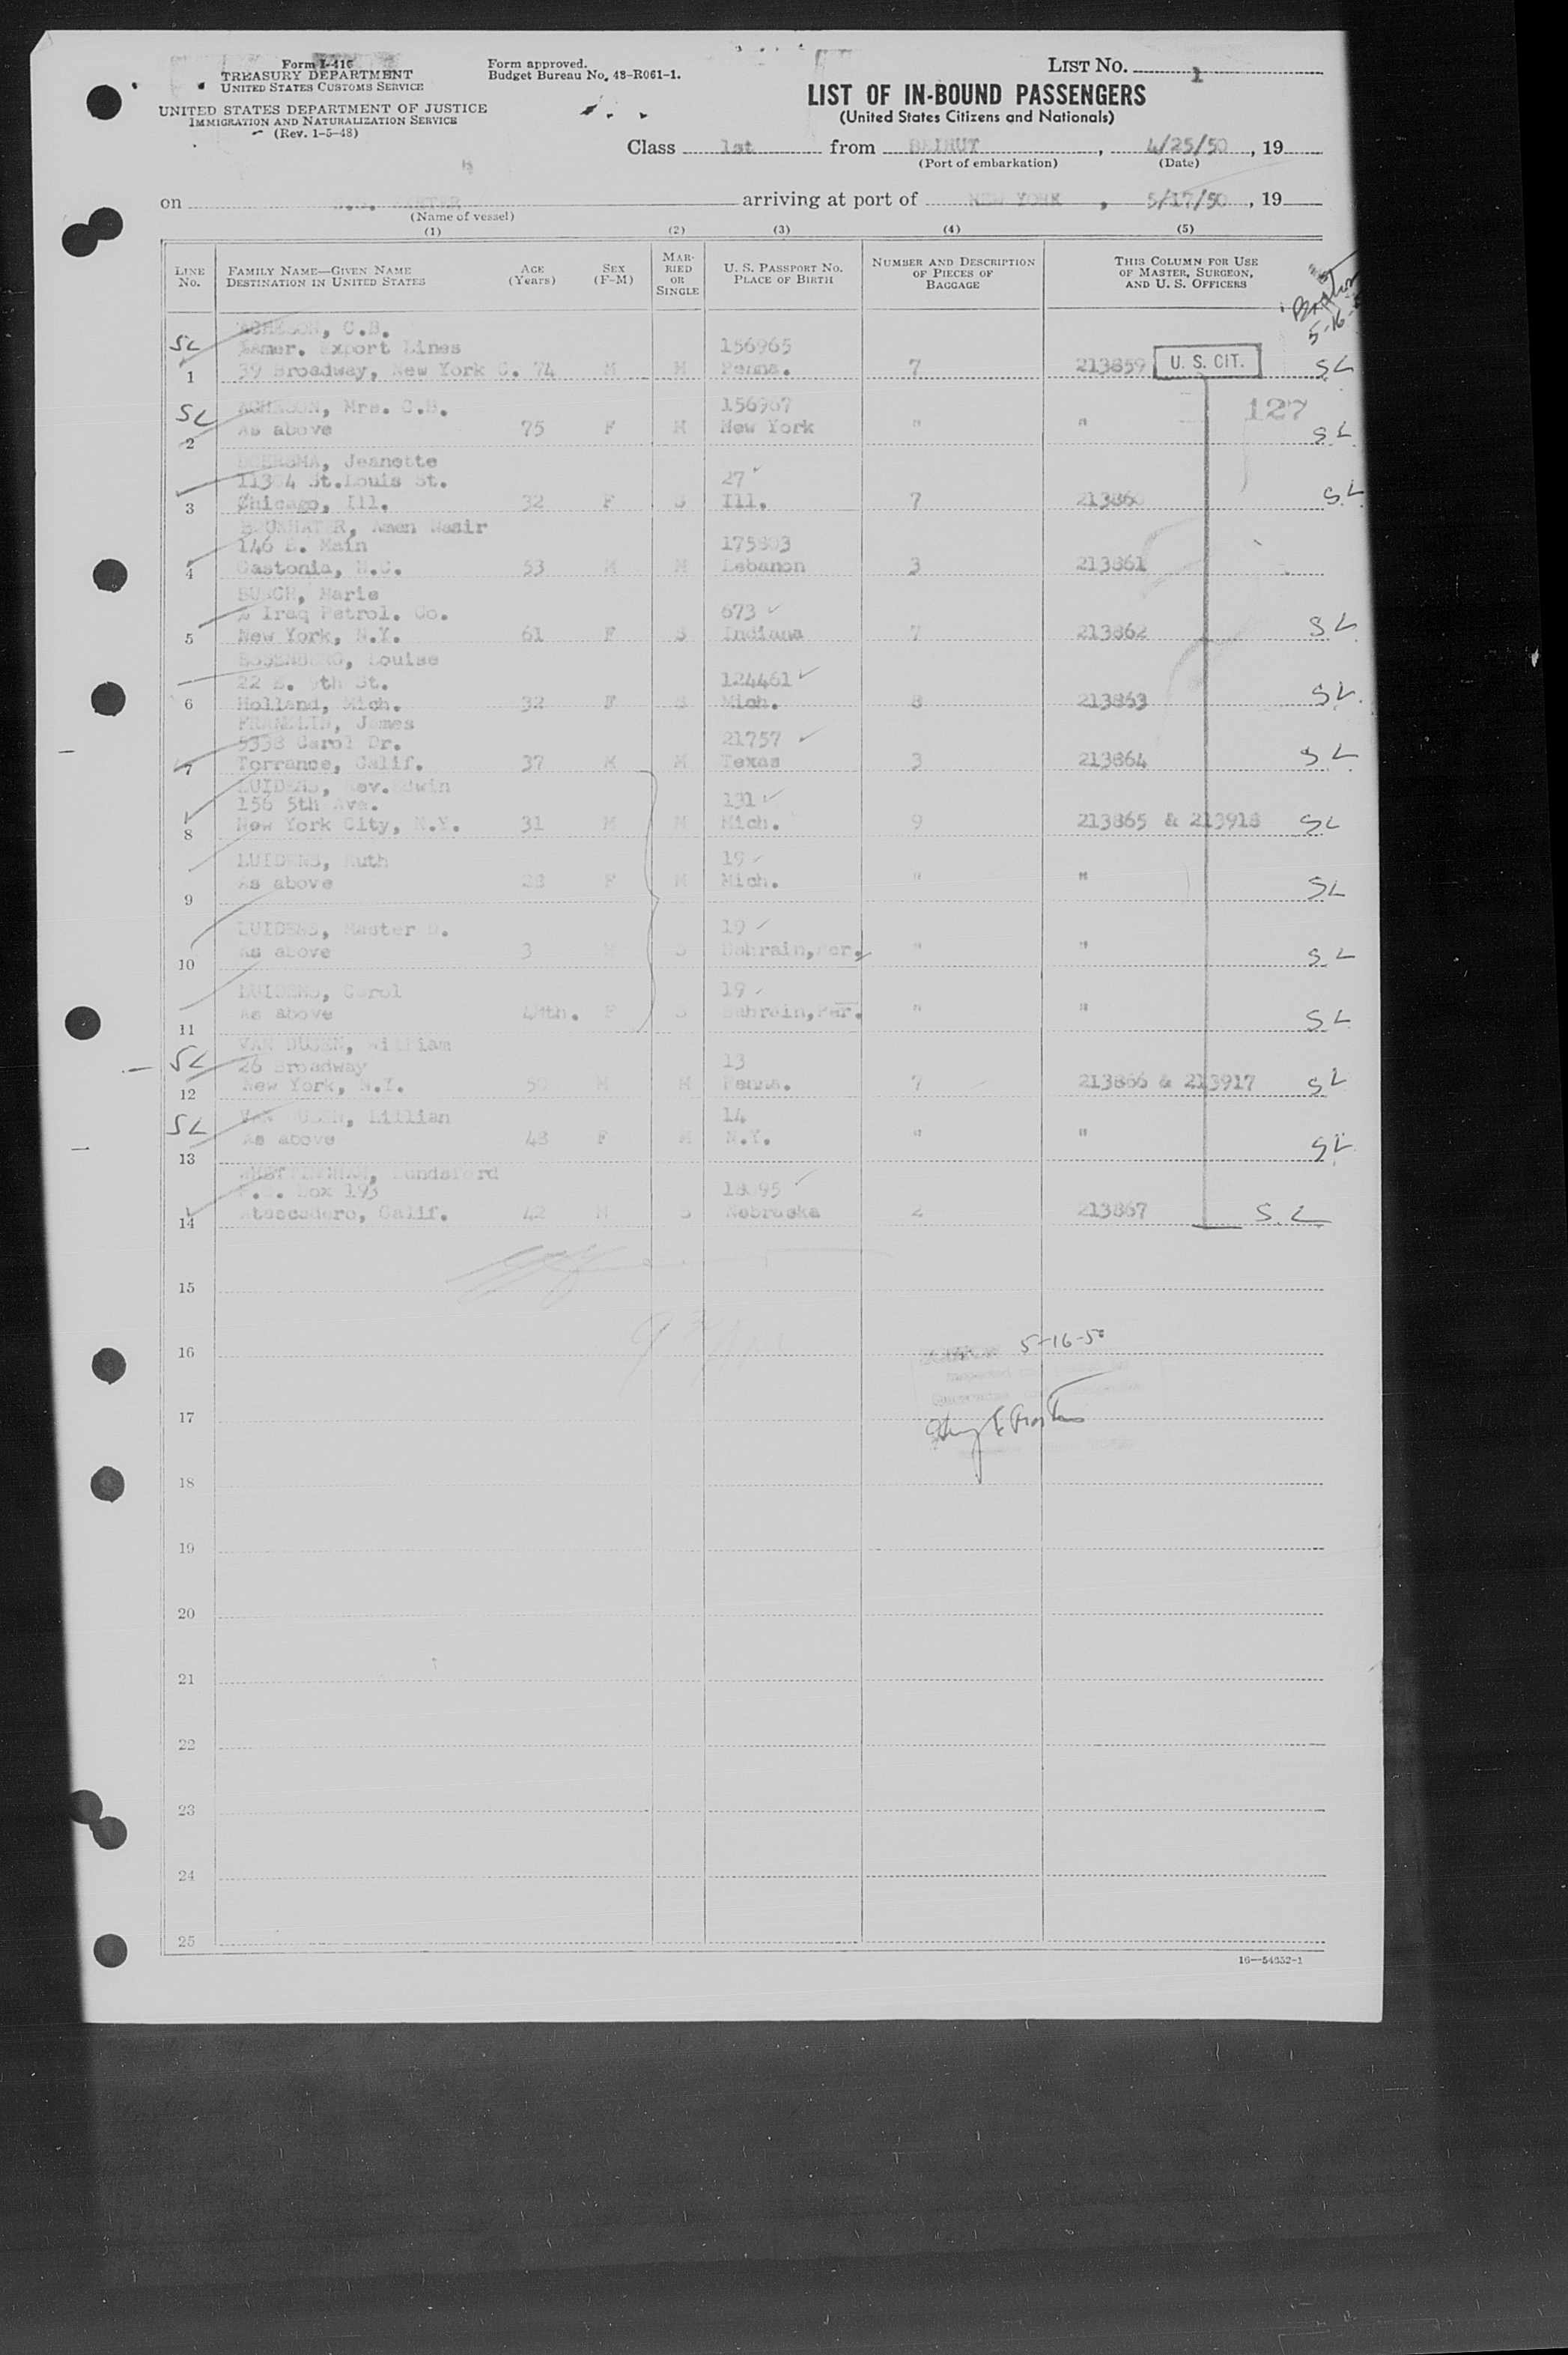 Form I-416
TREASURY DEPARTMENT
UNITED STATES CUSTOMS SERVICE
UNITED STATES DEPARTMENT OF JUSTICE
IMMIGRATION AND NATURALIZATION SERVICE
(Rev. 1-5-48)
Form approved.
Budget Bureau No. 48-R061-1.
LIST No. 1
LIST OF IN-BOUND PASSENGERS
(United States Citizens and Nationals)
Class 1st from BEIRUT, 4/25/50, 19
(Port of embarkation) (Date)
on arriving at port of NEW YORK, 5/17/50, 19
(Name of vessel)
(1) (2) (3) (4) (5)
LINE No.
FAMILY NAME—GIVEN NAME
DESTINATION IN UNITED STATES
AGE (Years)
SEX (F-M)
MARRIED OR SINGLE
U. S. PASSPORT No.
PLACE OF BIRTH
NUMBER AND DESCRIPTION OF PIECES OF BAGGAGE
THIS COLUMN FOR USE OF MASTER, SURGEON, AND U. S. OFFICERS
5-16-
ACHESON, C.B.
SL Amer. Export Lines 156965
1 39 Broadway, New York C. 74 M M Penna. 7 213859 U. S. CIT. SL
SL ACHESON, Mrs. C.B. 156967 127
2 As above 75 F M New York " " SL
Jeanette
St.Louis St. 27
3 Chicago, Ill. 32 F S Ill. 7 213860 SL
Amen Nasir
146 E. Main
4 Gastonia, N.C. 53 M M Lebanon 3 213861
BUSCH, Marie
% Iraq Petrol. Co. 673
5 New York, N.Y. 61 F S Indiana 7 213862 SL
Louise
22 E. 9th St. 124461
6 Holland, Mich. 32 F S Mich. 8 213863 SL
FRANKLIN, James
Carol Dr. 21757
7 Torrance, Calif. 37 M M Texas 3 213864 SL
LUIDENS, Rev. Edwin
156 5th Ave. 131
8 New York City, N.Y. 31 M M Mich. 9 213865 & 213918 SL
LUIDENS, Ruth 19
9 As above 28 F M Mich. " " SL
LUIDENS, Master 19
10 As above 3 M S Bahrain, Per. " " SL
LUIDENS, Carol 19
11 As above 4Mth. F S Bahrain, Per. " " SL
SL VAN DUSEN, William
26 Broadway 13
12 New York, N.Y. 50 M M Penna. 7 213866 & 213917 SL
SL VAN DUSEN, Lillian 14
13 As above 48 F M N.Y. " " SL
P.O. Box 193
14 Atascadero, Calif. 42 M S Nebraska 2 213867 SL
15
16 5-16-50
17
18
19
20
21
22
23
24
25
16—54652-1